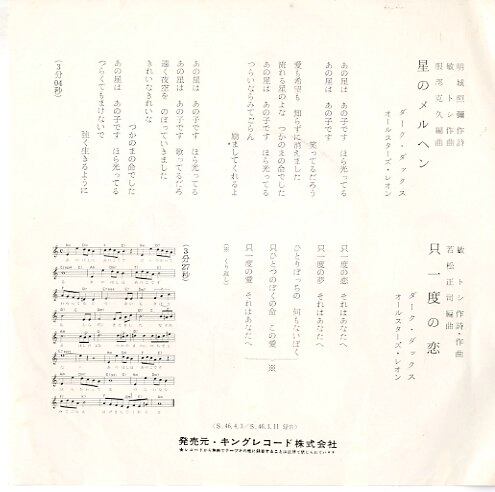 明城照彌作詩
敏トシ作曲
服部克久編曲
星のメルヘン
ダーク・ダックス
オールスターズ・レオン
あの星は あの子です ほら光ってる
あの星は あの子です 笑ってるだろう
愛も希望も 知らずに消えました
流れる星のよな つかのまの命でした
あの星は あの子です ほら光ってる
つらいならみてごらん
励ましてくれるよ
あの星は あの子です ほら光ってる
あの星は あの子です 歌ってるだろ
遠く夜空を のぼっていきました
きれいなきれいな
つかのまの命でした
あの星は あの子です ほら光ってる
つらくてもまけないで
強く生きるように
(3分04秒)
敏トシ作詩・作曲
若松正司編曲
只一度の恋
ダーク・ダックス
オールスターズ・レオン
只一度の恋 それはあなたへ
只一度の夢 それはあなたへ
ひとりぼっちの 何もないぼく
只ひとつのぼくの命 この愛 ※
只一度の愛 それはあなたへ
(※ くり返し)
(3分27秒)
(S.46.4.3/S.46.3.11 録音)
発売元・キングレコード株式会社
★レコードから無断でテープその他に録音することは法律で禁じられています